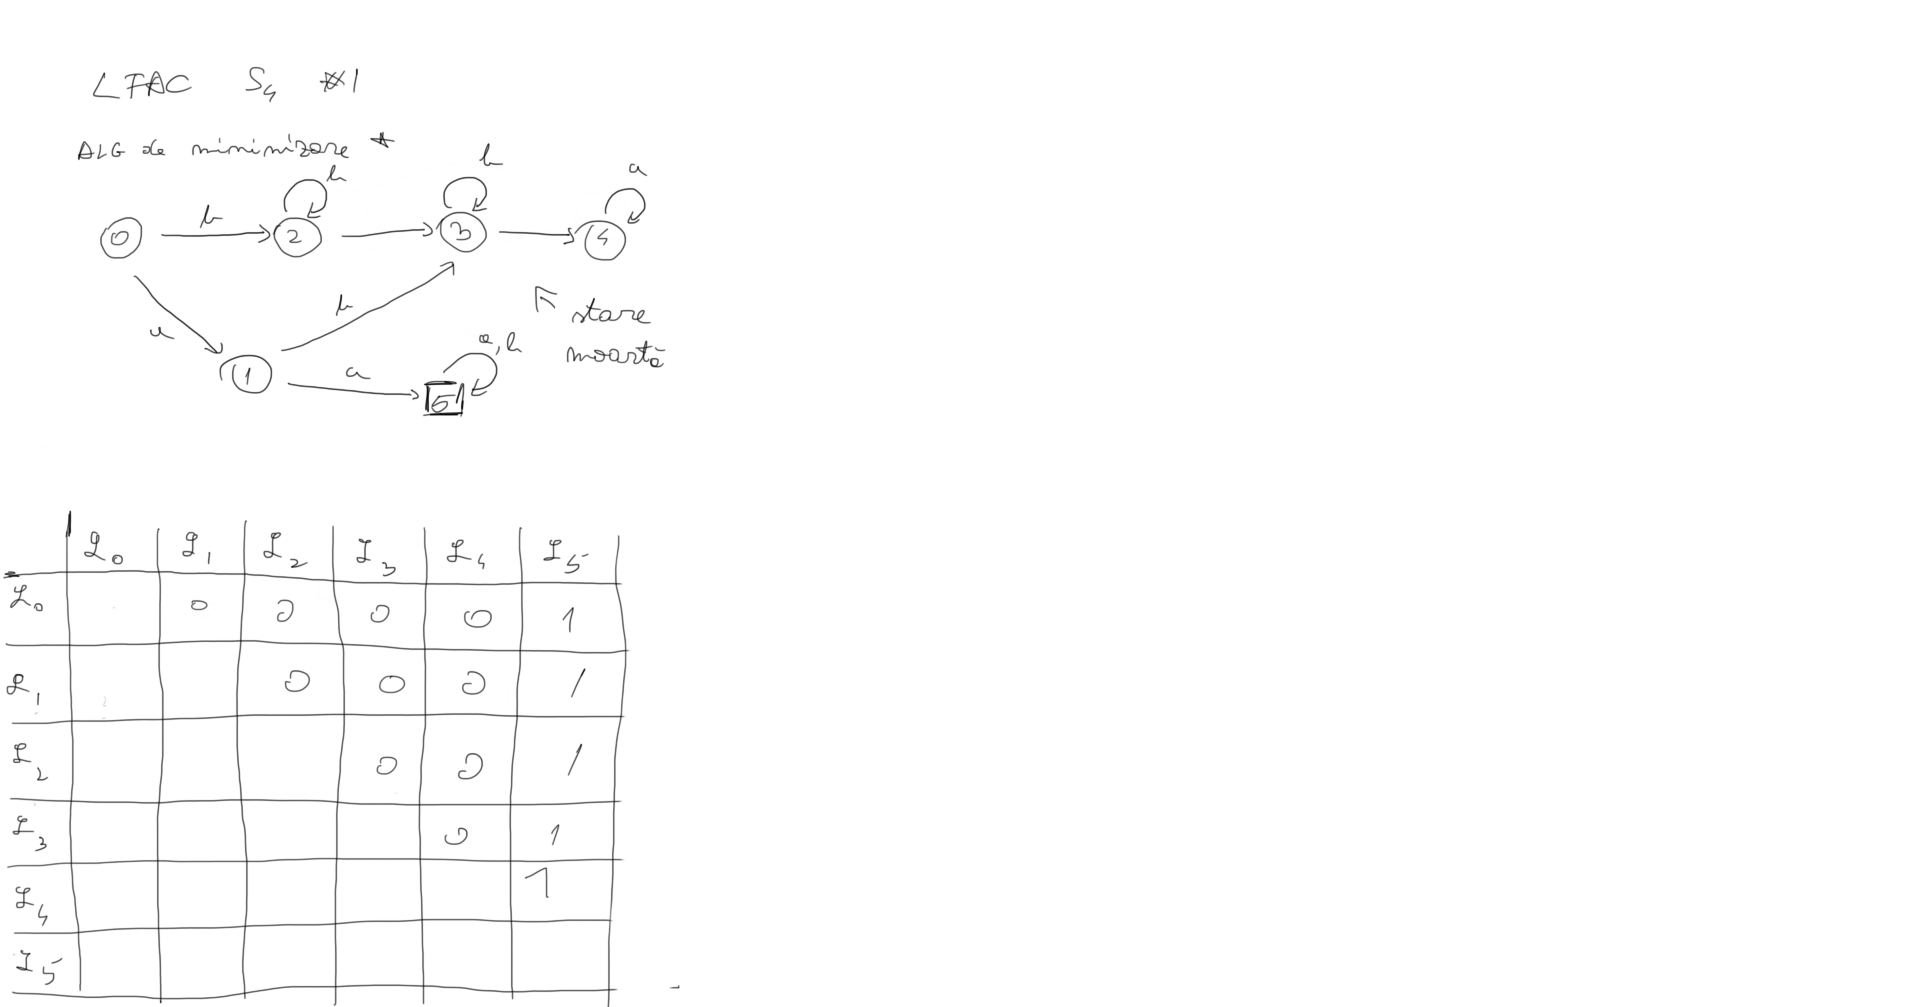 LFAC S4 #1
ALG de minimizare *
b b a
0 b 2 3 4
b
a stare
a, b moartă
1 a 5
L0 L1 L2 L3 L4 L5
L0 0 0 0 0 1
L1 0 0 0 1
L2 0 0 1
L3 0 1
L4 1
L5